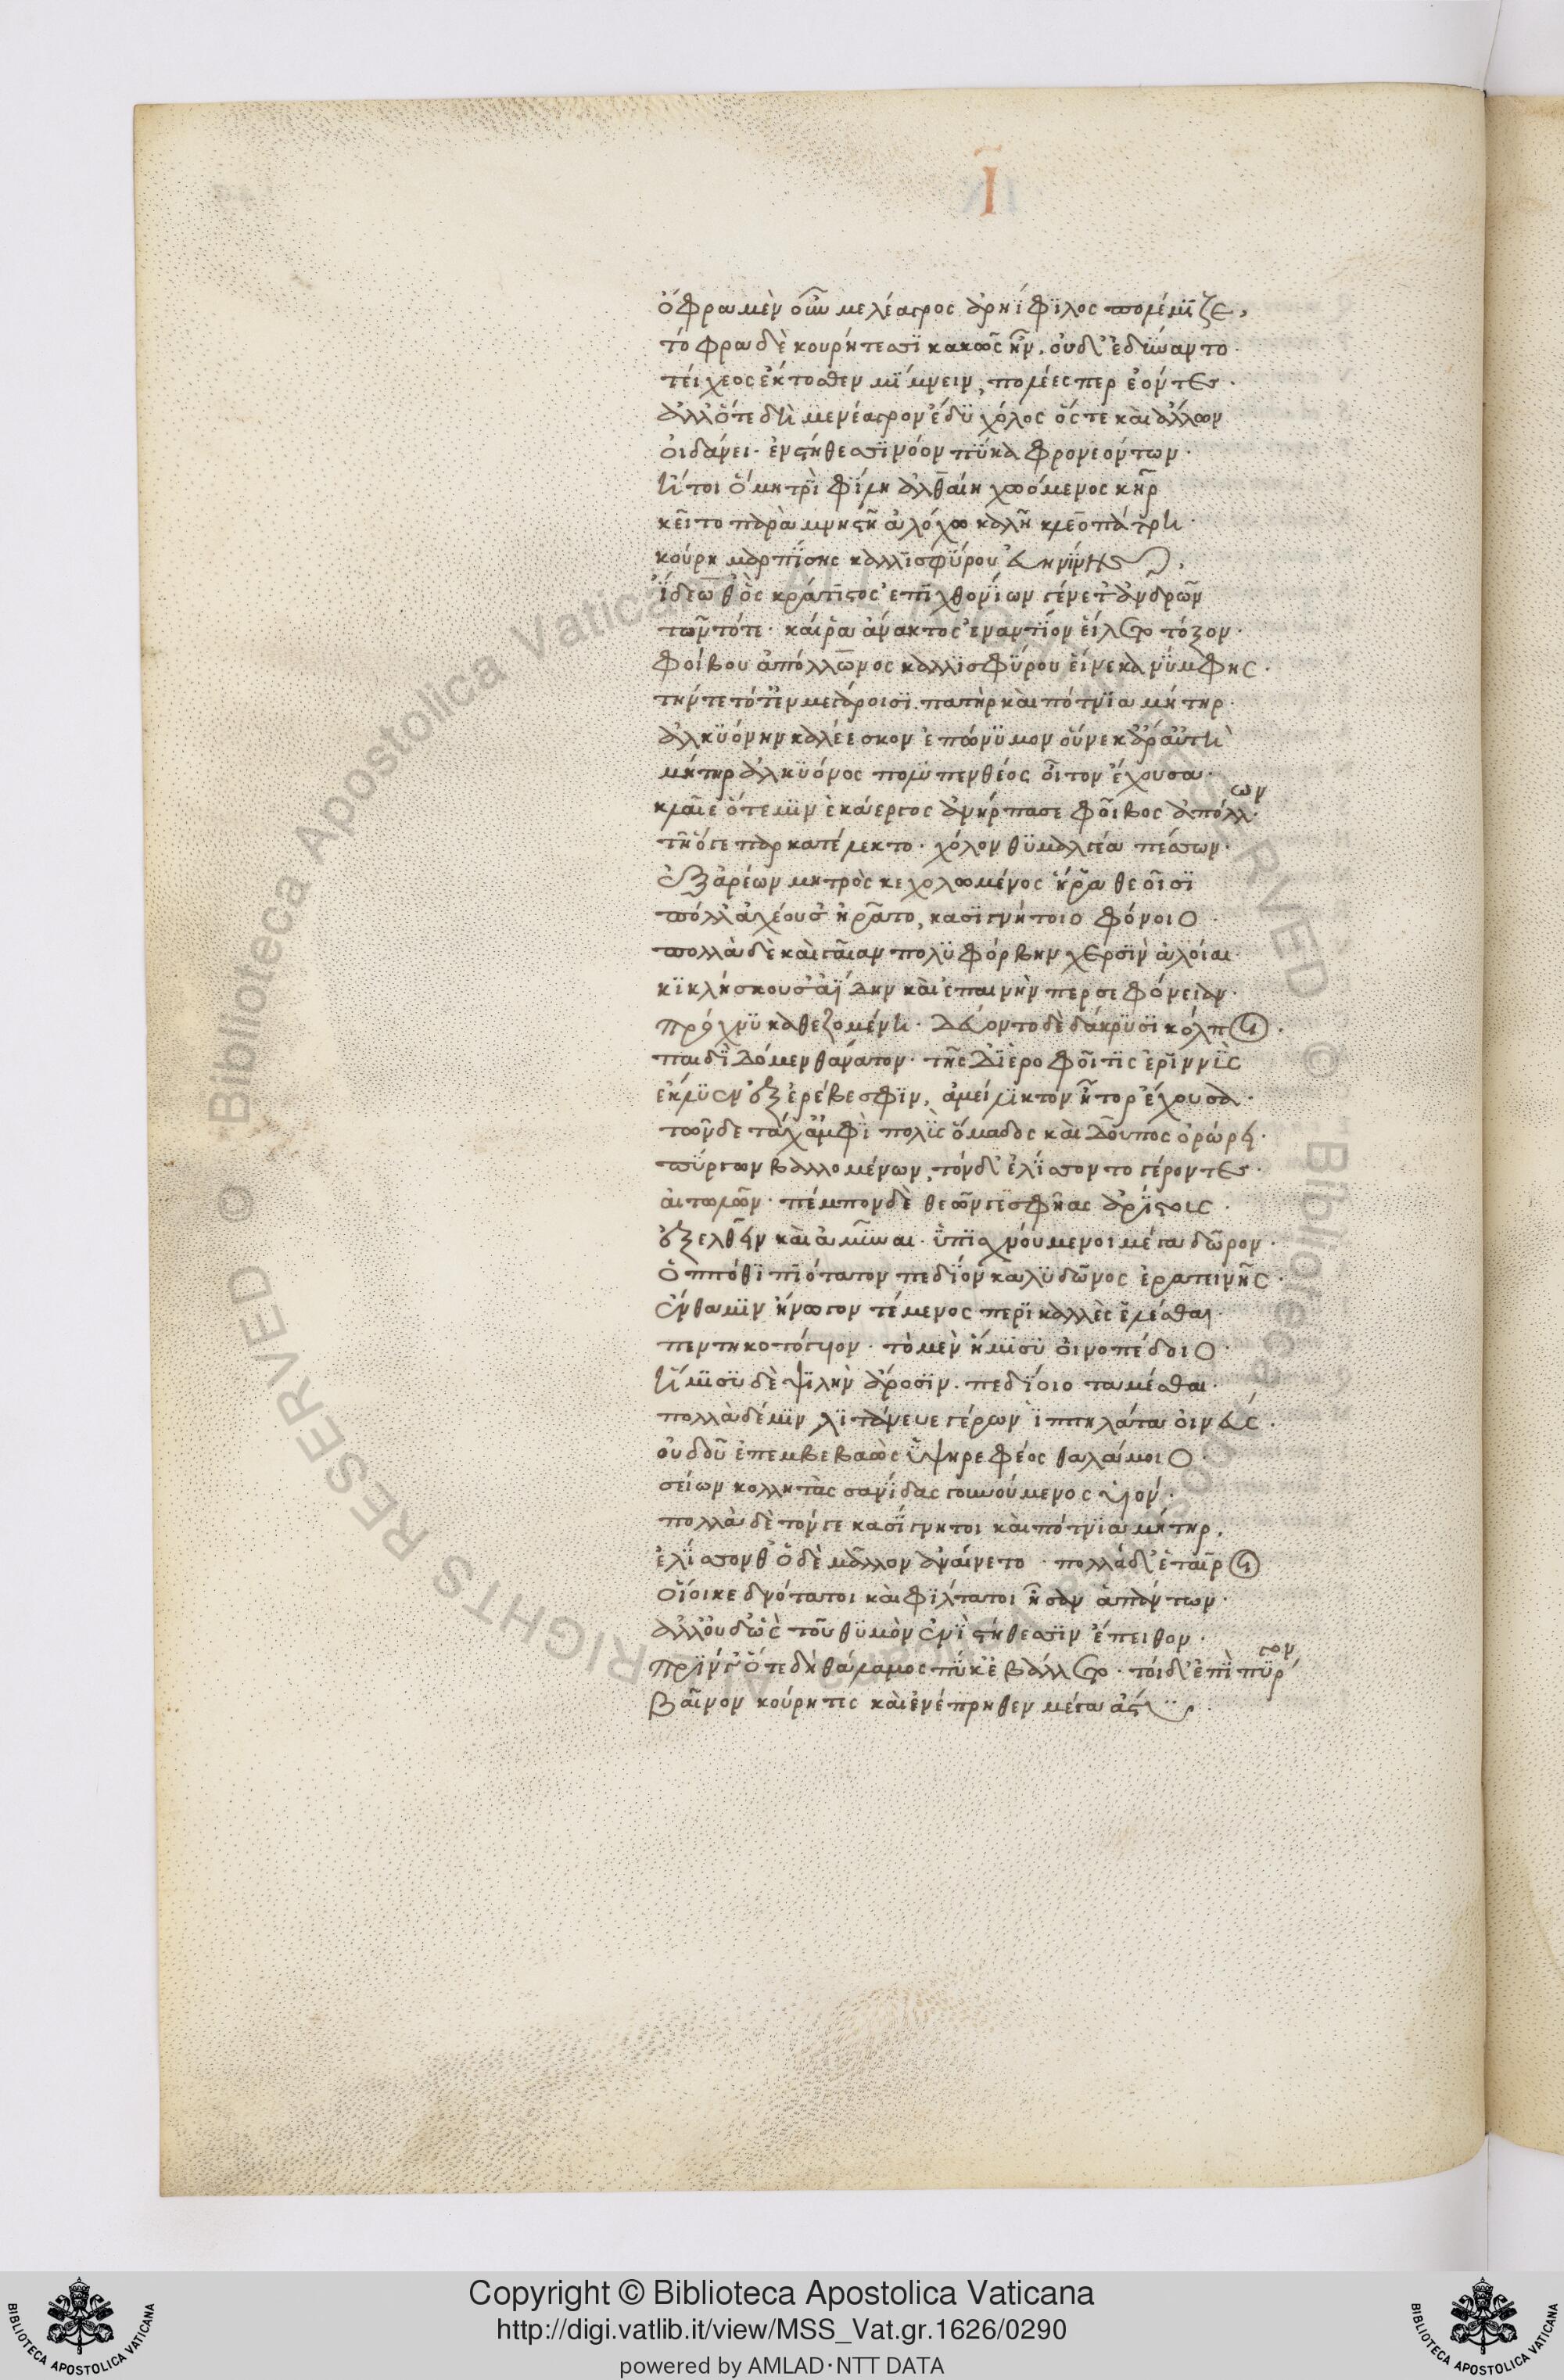 Ι
ὄφρα μὲν οὖν μελέαγρος ἀρηΐφιλος πολέμιζε,
τόφρα δὲ κουρήτεσι κακῶς ἦν. οὐδ' ἐδύναντο.
τείχεος ἔκτοσθεν μίμνειν, πολέες περ ἐόντες.
ἀλλ' ὅτε δὴ μελέαγρον ἔδυ χόλος ὅς τε καὶ ἄλλων
οἰδάνει. ἐν στήθεσι νόον πύκα φρονεόντων.
ἤτοι ὁ μητρὶ φίλη ἀλθαίη χωόμενος κῆρ
κεῖτο παρὰ μνηστῇ ἀλόχω καλῇ κλεοπάτρη.
κούρη μαρπίσης καλλισφύρου εὐηνίνης.
ἴδεώ θ' ὃς κράτιστος ἐπιχθονίων γένετ' ἀνδρῶν
τῶν τότε. καί ῥα ἄνακτος ἐναντίον εἵλετο τόξον.
φοίβου ἀπόλλωνος καλλισφύρου εἵνεκα νύμφης.
τὴν δὲ τότ' ἐν μεγάροισι. πατὴρ καὶ πότνια μήτηρ.
ἀλκυόνην καλέεσκον ἐπώνυμον οὕνεκ' ἄρ' αὐτὴ
μήτηρ ἀλκυόνος πολυπενθέος οἶτον ἔχουσα.
κλαῖε ὅτε μιν ἑκάεργος ἀνήρπασε φοῖβος ἀπόλλων
τῆ ὅγε παρκατέλεκτο. χόλον θυμαλγέα πέσσων.
ἐξ ἀρέων μητρὸς κεχολωμένος ἥ ῥα θεοῖσι
πόλλ' ἀχέουσ' ἠρᾶτο, κασιγνήτοιο φόνοιο.
πολλὰ δὲ καὶ γαῖαν πολυφόρβην χερσὶν ἀλοία.
κικλήσκουσ' ἀΐδην καὶ ἐπαινὴν περσεφόνειαν.
πρόχνυ καθεζομένη. δεύοντο δὲ δάκρυσι κόλποι.
παιδὶ δόμεν θάνατον. τῆς δ' ἠεροφοῖτις ἐριννὺς
ἔκλυεν ἐξ ἐρέβεσφιν, ἀμείλικτον ἦτορ ἔχουσα.
τῶν δὲ τάχ' ἀμφὶ πύλας ὅμαδος καὶ δοῦπος ὀρώρει.
πύργων βαλλομένων, τὸν δ' ἐλίσσοντο γέροντες.
αἰτωλῶν. πέμπον δὲ θεῶν γε σφῆας ἀρίστους.
ἐξελθεῖν καὶ ἀμῦναι. ὑπισχνούμενοι μέγα δῶρον.
ὁππόθι πιότατον πεδίον καλυδῶνος ἐραπεινῆς.
ἔνθα μιν ἤνωγον τέμενος περικαλλὲς ἑλέσθαι.
πεντηκοτόγυον. τὸ μὲν ἥμισυ οἰνοπέδοιο.
ἥμισυ δὲ ψιλὴν ἄροσιν. πεδίοιο ταμέσθαι.
πολλὰ δέ μιν λιτάνευε γέρων ἱππηλάτα οἰνεύς.
οὐδοῦ ἐπεμβεβαὼς ὑψηρεφέος θαλάμοιο.
σείων κολλητὰς σανίδας γουνούμενος υἱόν.
πολλὰ δὲ τόν γε κασίγνητοι καὶ πότνια μήτηρ,
ἐλίσσονθ' ὁ δὲ μᾶλλον ἀναίνετο. πολλὰ δ' ἑταῖροι
οἵ οἱ κεδνότατοι καὶ φίλτατοι ἦσαν ἁπάντων.
ἀλλ' οὐδ' ὧς τοῦ θυμὸν ἐνὶ στήθεσσιν ἔπειθον.
πρίν γ' ὅτε δὴ θάλαμος πύκ' ἐβάλλετο. τοὶ δ' ἐπὶ πύργον
βαῖνον κούρητες καὶ ἐνέπρηθεν μέγα ἄστυ.
Copyright © Biblioteca Apostolica Vaticana
http://digi.vatlib.it/view/MSS_Vat.gr.1626/0290
powered by AMLAD·NTT DATA